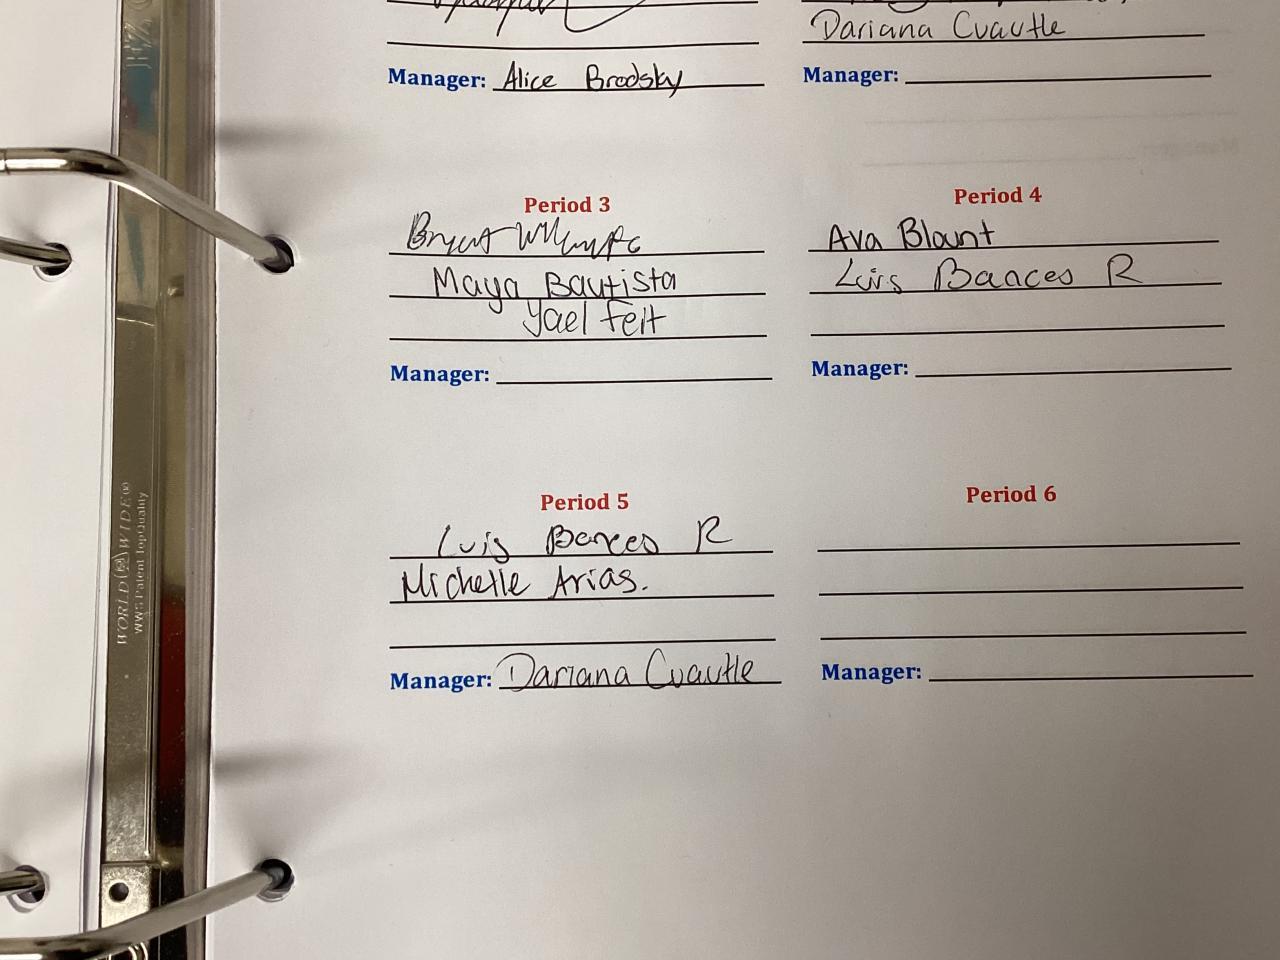 Dariana Cuautle
Manager: Alice Brodsky
Manager:
Period 3
Maya Bautista
Yael Feit
Manager:
Period 4
Ava Blount
Luis Bances R
Manager:
Period 5
Luis Bances R
Michelle Arias.
Manager: Dariana Cuautle
Period 6
Manager:
WORLD WIDE
WWS Patent Top Quality